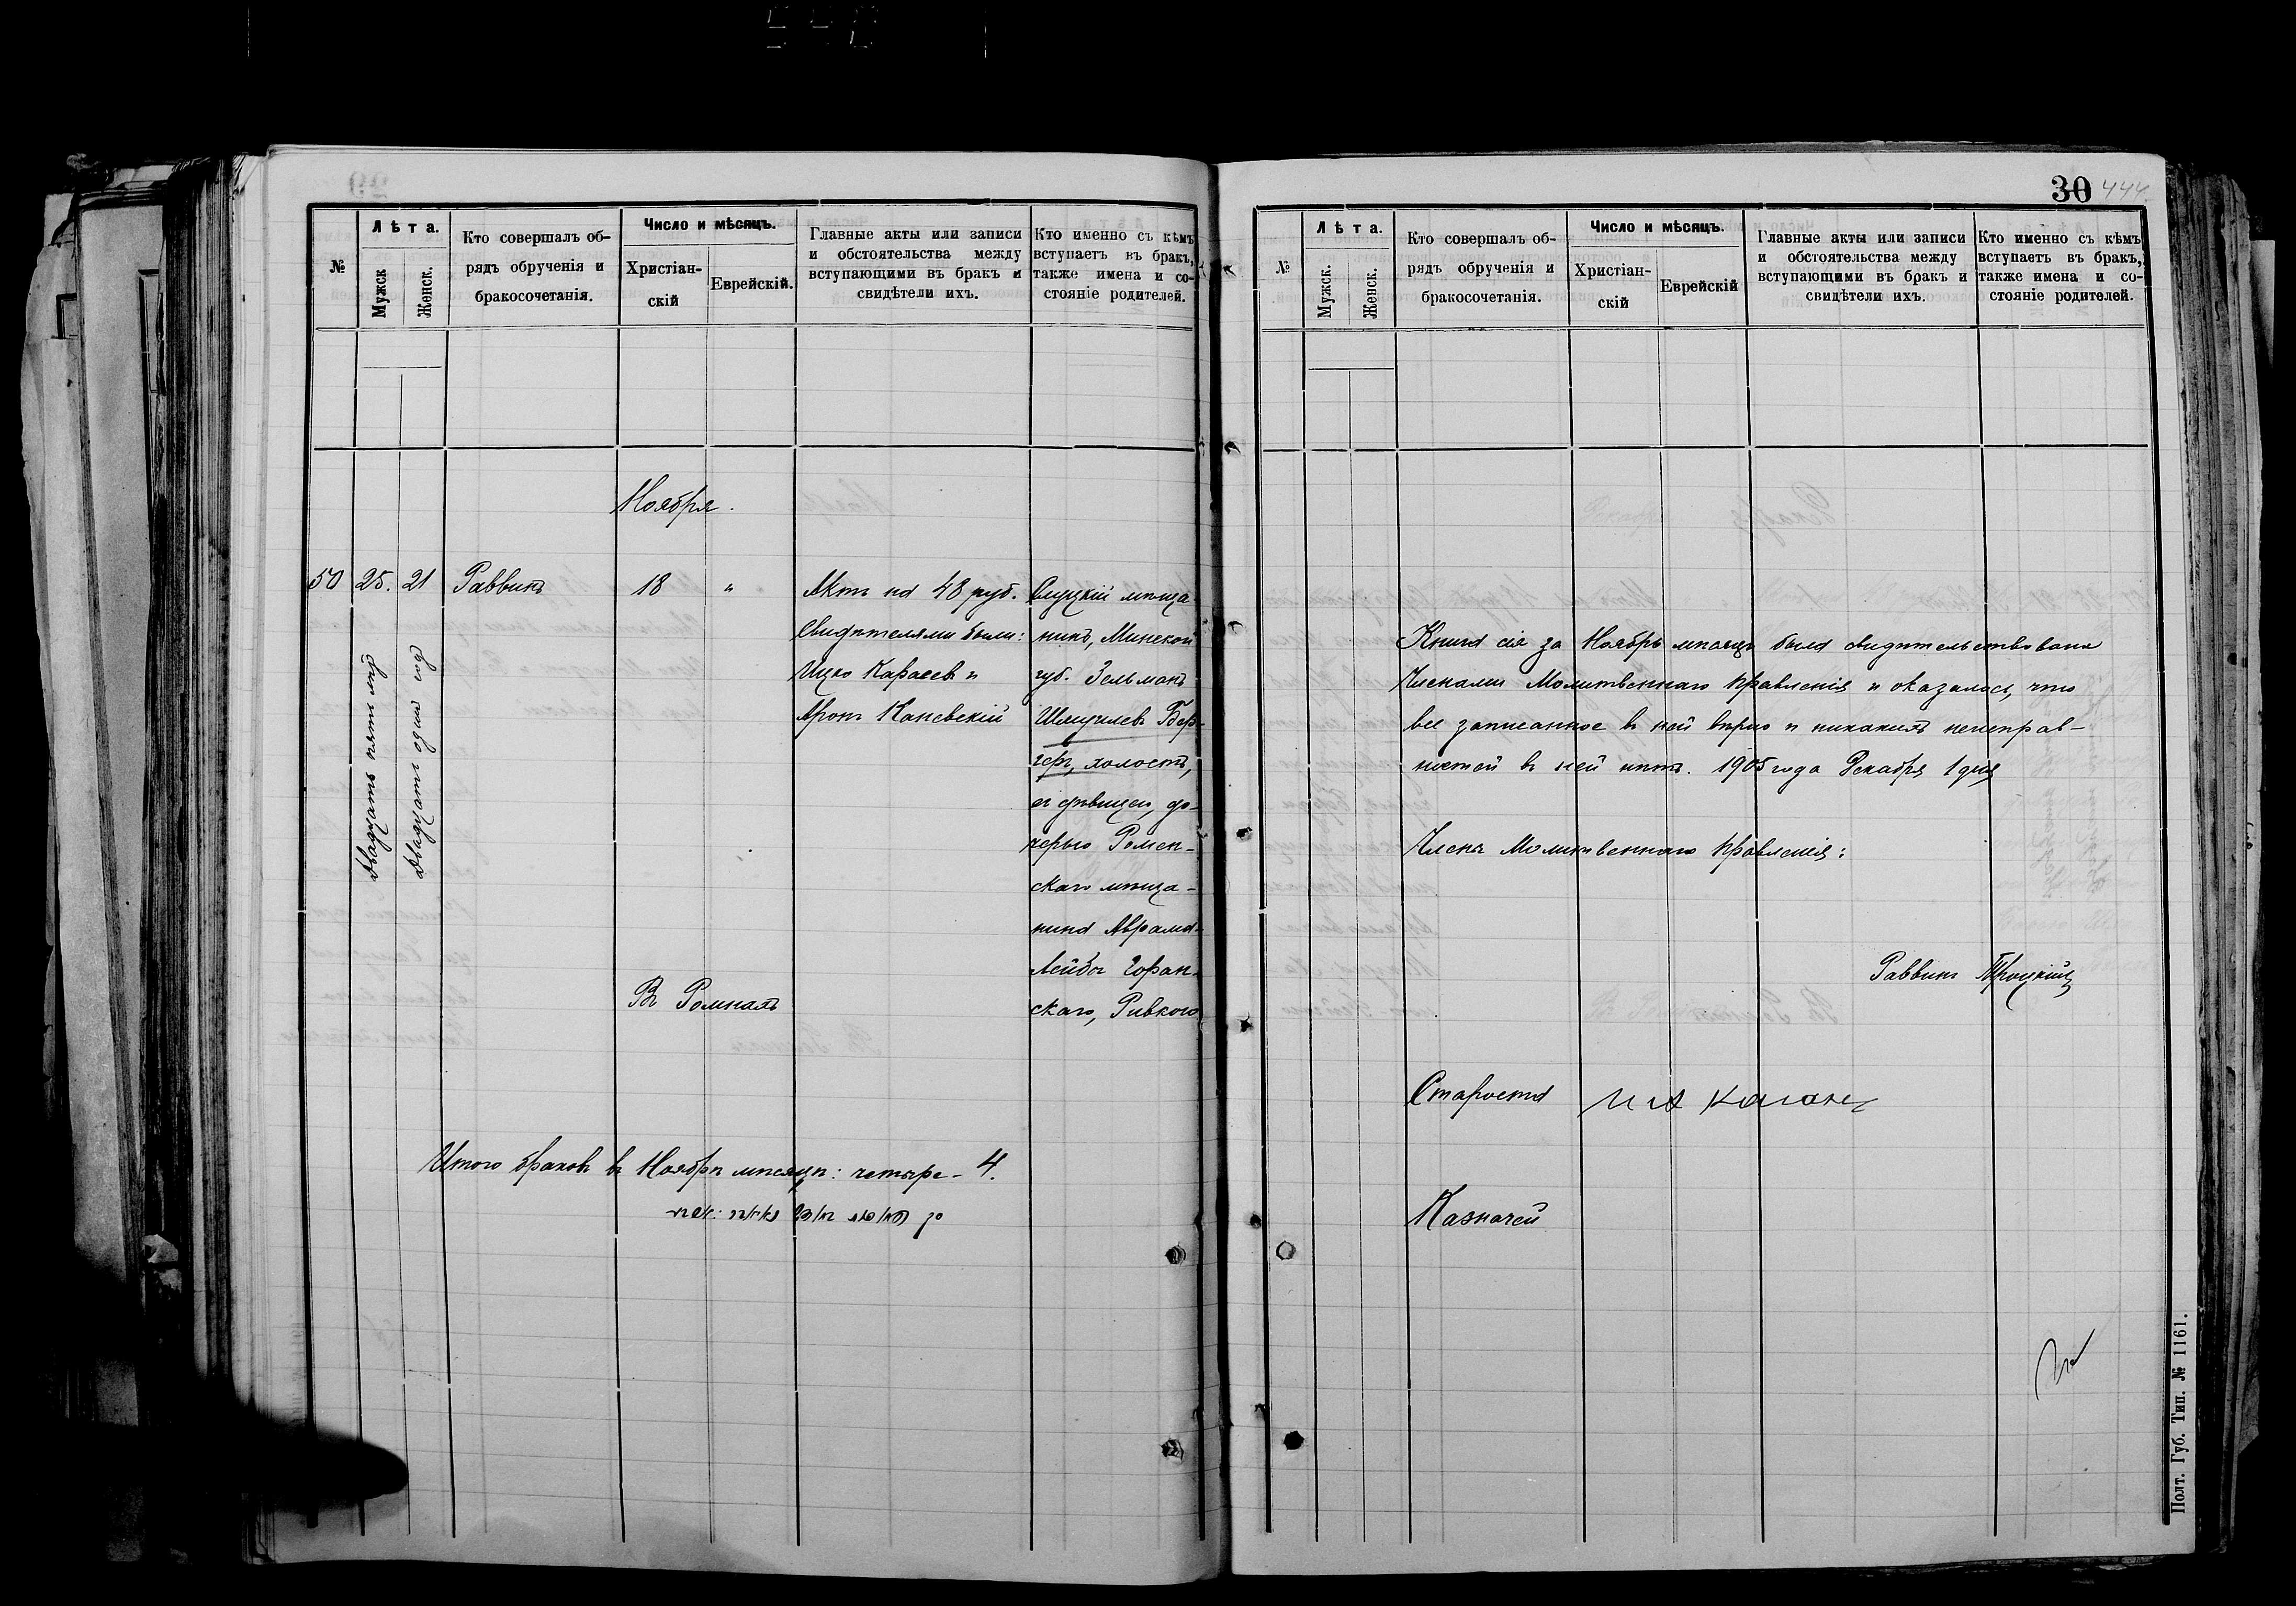 №
Лѣта.
Мужск
Женск.
Кто совершалъ об-
рядъ обрученія и
бракосочетанія.
Число и мѣсяцъ.
Христіан-
скій
Еврейскій.
Главные акты или записи
и обстоятельства между
вступающими въ бракъ и
свидѣтели ихъ.
Кто именно съ кѣмъ
вступаетъ въ бракъ,
также имена и со-
стояніе родителей.
Ноября.
50 25. 21 Раввинъ 18 "
Двадцать пять лѣтъ
Двадцать одинъ годъ
Актъ на 48 руб.
Свидѣтелями были:
Ицко Карасев и
Аронъ Каневскій
Слуцкій мѣща-
нинъ, Минской
губ. Зельманъ
Бер-
геръ, холостъ,
съ дѣвицею, до-
черью Ромен-
скаго мѣща-
нина Аврама-
Лейбы Горан-
скаго, Ривкою
Въ Ромнахъ
Итого браковъ въ Ноябрѣ мѣсяцѣ: четыре - 4.
30 444
№
Лѣта.
Мужск.
Женск.
Кто совершалъ об-
рядъ обрученія и
бракосочетанія.
Число и мѣсяцъ.
Христіан-
скій
Еврейскій
Главные акты или записи
и обстоятельства между
вступающими въ бракъ и
свидѣтели ихъ.
Кто именно съ кѣмъ
вступаетъ въ бракъ,
также имена и со-
стояніе родителей.
Книга сія за Ноябрь мѣсяцъ была свидѣтельствована
Членами Молитвеннаго Правленія и оказалось, что
все записанное въ ней вѣрно и никакихъ неисправ-
ностей въ ней нѣтъ. 1905 года Декабря 1 дня
Члены Молитвеннаго Правленія:
Раввинъ Троцкій
Староста Каганъ
Казначей
Полт. Губ. Тип. № 1161.